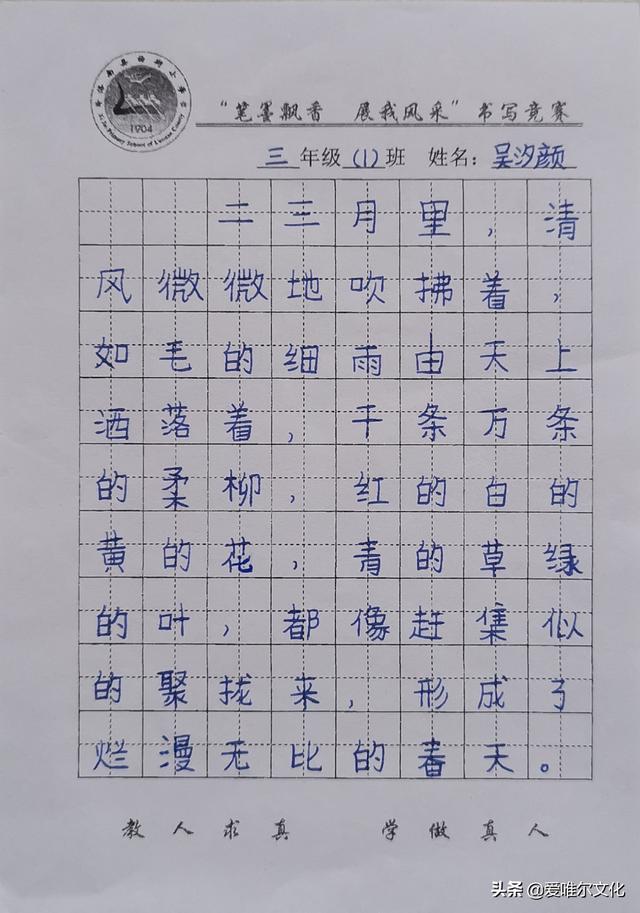 1904
“笔墨飘香 展我风采”书写竞赛
三年级(1)班 姓名:吴汐颜
二三月里,清
风微微地吹拂着,
如毛的细雨由天上
洒落着,千条万条
的柔柳,红的白的
黄的花,青的草绿
的叶,都像赶集似
的聚拢来,形成了
烂漫无比的春天。
教人求真 学做真人
头条 @爱唯尔文化